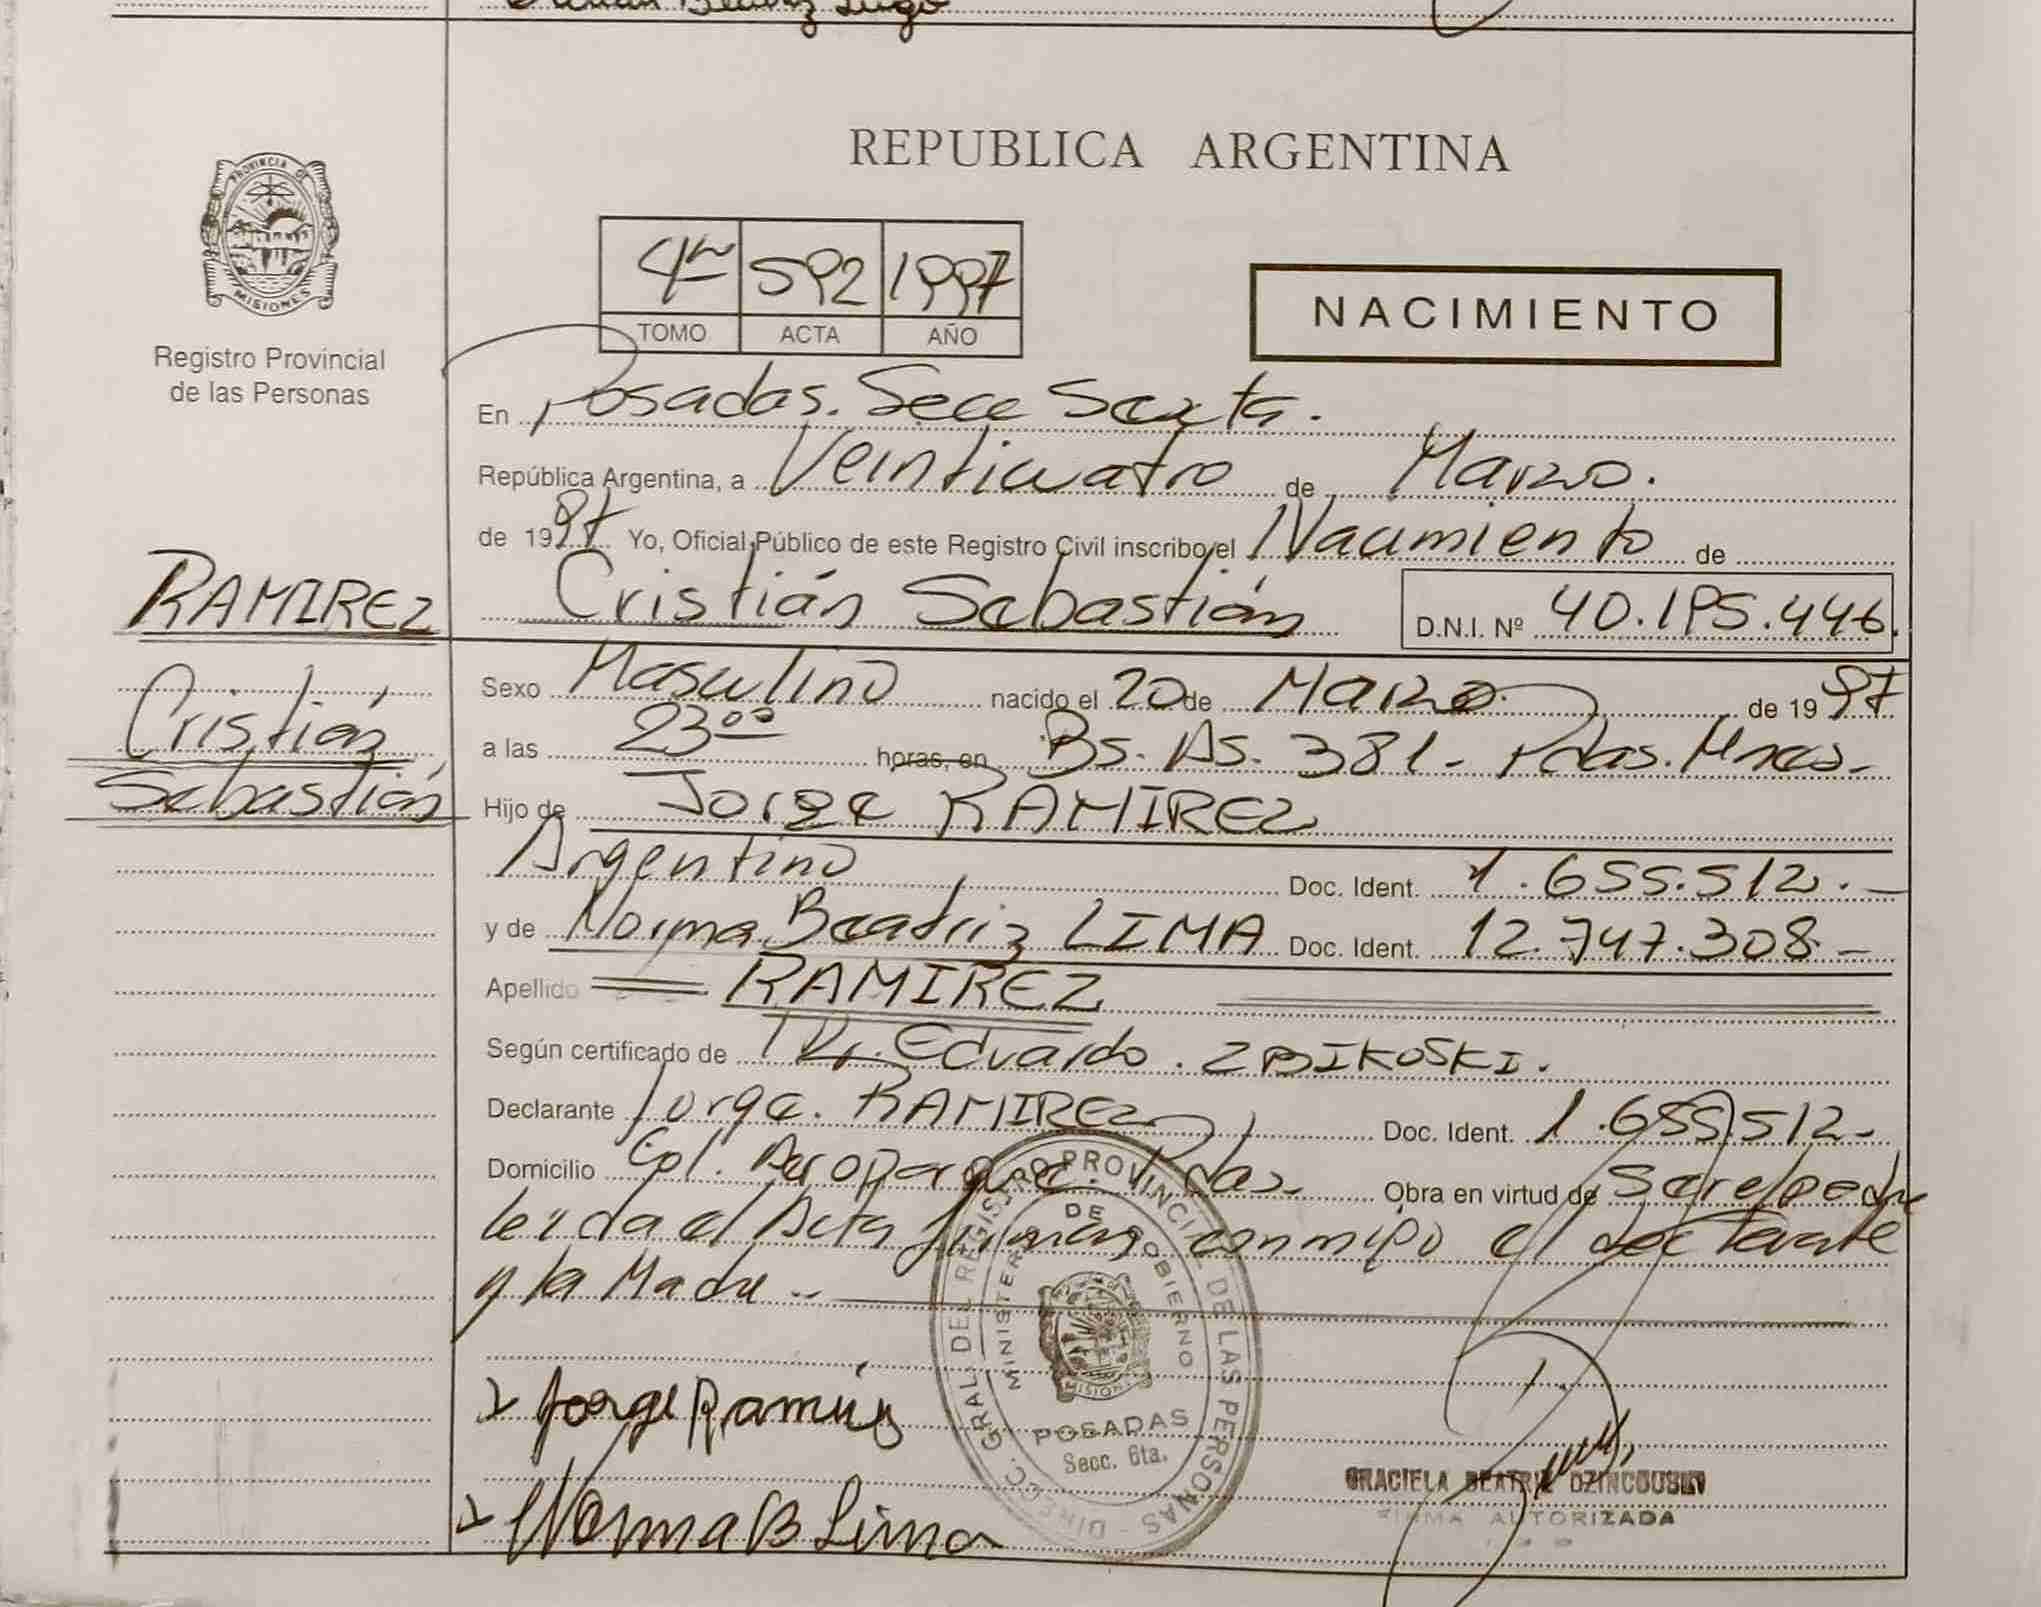 Beatriz Lugo
PROVINCIA DE
MISIONES
Registro Provincial
de las Personas
REPUBLICA ARGENTINA
4to 592 1997
TOMO ACTA AÑO
NACIMIENTO
En Posadas. Secc Sexta.
República Argentina, a Veinticuatro de Marzo.
de 1997 Yo, Oficial Público de este Registro Civil inscribo el Nacimiento de
Cristián Sebastián D.N.I. Nº 40.195.446.
RAMIREZ
Cristián
Sebastián
Sexo Masculino nacido el 20 de Marzo de 1997
a las 23 00 horas, en Bs. As. 381 - Pdas. Mnes.-
Hijo de Jorge RAMIREZ
Argentino Doc. Ident. 1.655.512.-
y de Norma Beatriz LIMA Doc. Ident. 12.747.308.-
Apellido RAMIREZ
Según certificado de Dr. Eduardo. ZBIKOSKI.
Declarante Jorge. RAMIREZ Doc. Ident. 1.655.512-
Domicilio Aeroparque. Pdas. Obra en virtud de Ser el padre
leida el Acta firman conmigo el declarante
y la Madre -
Jorge Ramírez
Norma B Lima
DIRECC. GRAL. DEL REGISTRO PROVINCIAL DE LAS PERSONAS -
MINISTERIO DE GOBIERNO
MISIONES
POSADAS
Secc. 6ta.
GRACIELA BEATRIZ
FIRMA AUTORIZADA